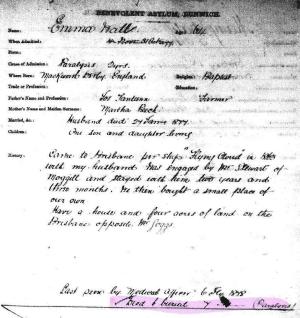 BENEVOLENT ASYLUM, DUNWICH.
Name: Emma Hall Age:
When Admitted:
From
Cause of Admission: Paralysis
Where Born: Mackworth Derby England Religion: Baptist
Trade or Profession: Education:
Father's Name and Profession: Jos Farmer
Mother's Name and Maiden Surname: Martha Beck
Married: Husband died 24 June 1877
Children: One son and daughter living
History: Came to Brisbane per ship "Flying Cloud" in
with my husband. Was engaged by Mr Stewart of
Moggill and stayed with him two years and
three months. He then bought a small place of
our own
Have a house and four acres of land on the
Brisbane opposite Mr
Last seen by Medical Officer 6 1878
Died & buried 7 (Paralysis)